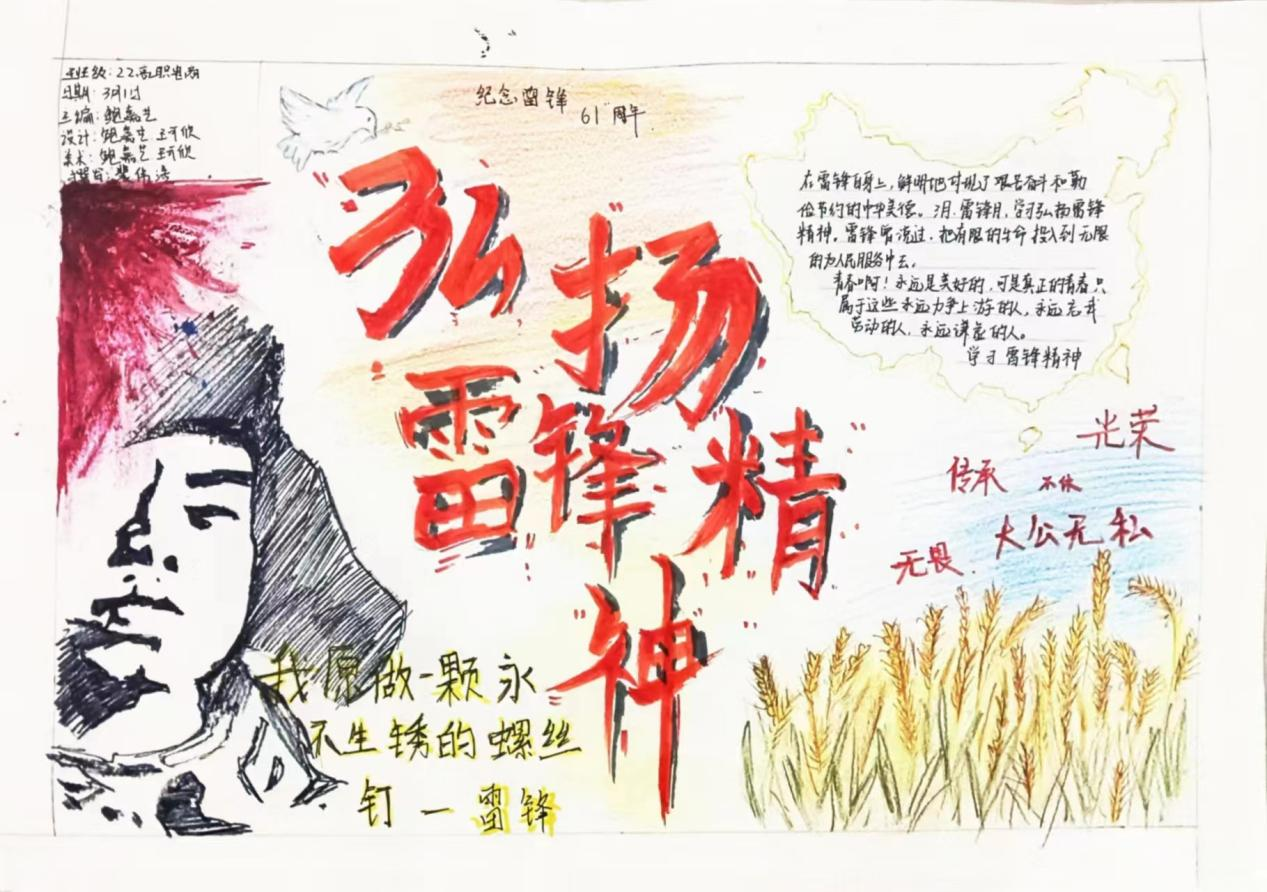 班级：22高职电商
日期：3月1日
主编：鲍嘉艺
设计：鲍嘉艺 王可欣
美术：鲍嘉艺 王可欣
纪念雷锋
61周年
弘扬
雷锋精
神
在雷锋身上，鲜明地体现了艰苦奋斗和勤
俭节约的中华美德。3月，雷锋月，学习弘扬雷锋
精神。雷锋曾说过，把有限的生命投入到无限
的为人民服务中去。
青春啊！永远是美好的，可是真正的青春只
属于这些永远力争上游的人，永远忘我
劳动的人，永远谦虚的人。
学习雷锋精神
光荣
传承 不休
大公无私
无畏
我愿做一颗永
不生锈的螺丝
钉一雷锋